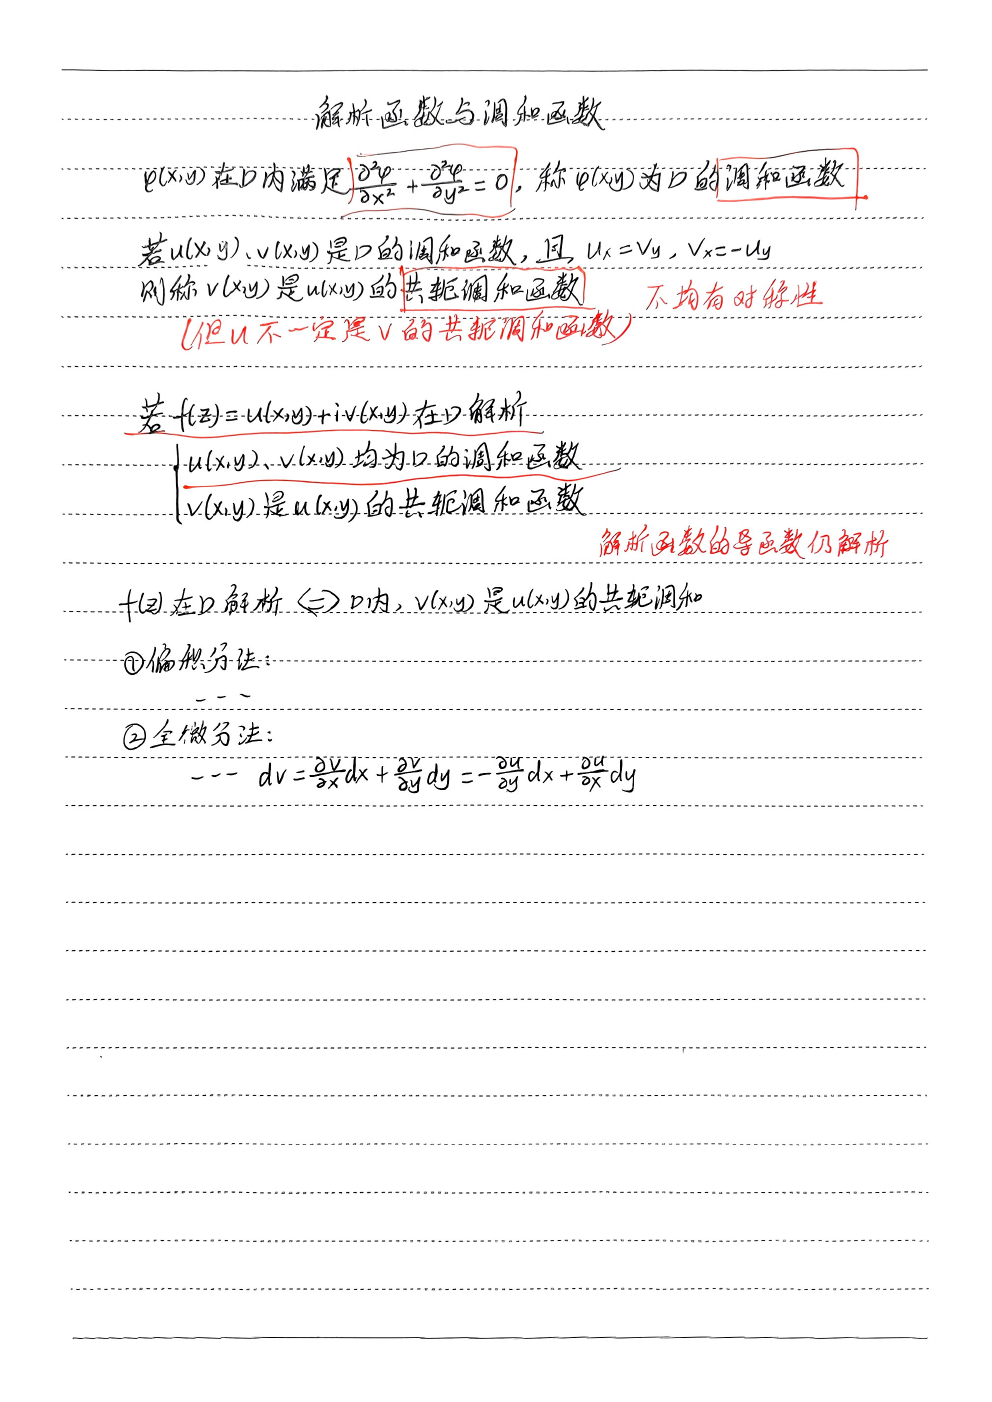 解析函数与调和函数
φ(x,y)在D内满足 ∂²φ/∂x² + ∂²φ/∂y² = 0, 称φ(x,y)为D的调和函数
若u(x,y)、v(x,y)是D的调和函数, 且 ux=vy, vx=-uy
则称v(x,y)是u(x,y)的共轭调和函数 不均有对称性
(但u不一定是v的共轭调和函数)
若f(z)=u(x,y)+iv(x,y)在D解析
u(x,y)、v(x,y)均为D的调和函数
v(x,y)是u(x,y)的共轭调和函数
解析函数的导函数仍解析
f(z)在D解析 <=> D内, v(x,y)是u(x,y)的共轭调和
①偏积分法:
---
②全微分法:
--- dv = ∂v/∂x dx + ∂v/∂y dy = -∂u/∂y dx + ∂u/∂x dy